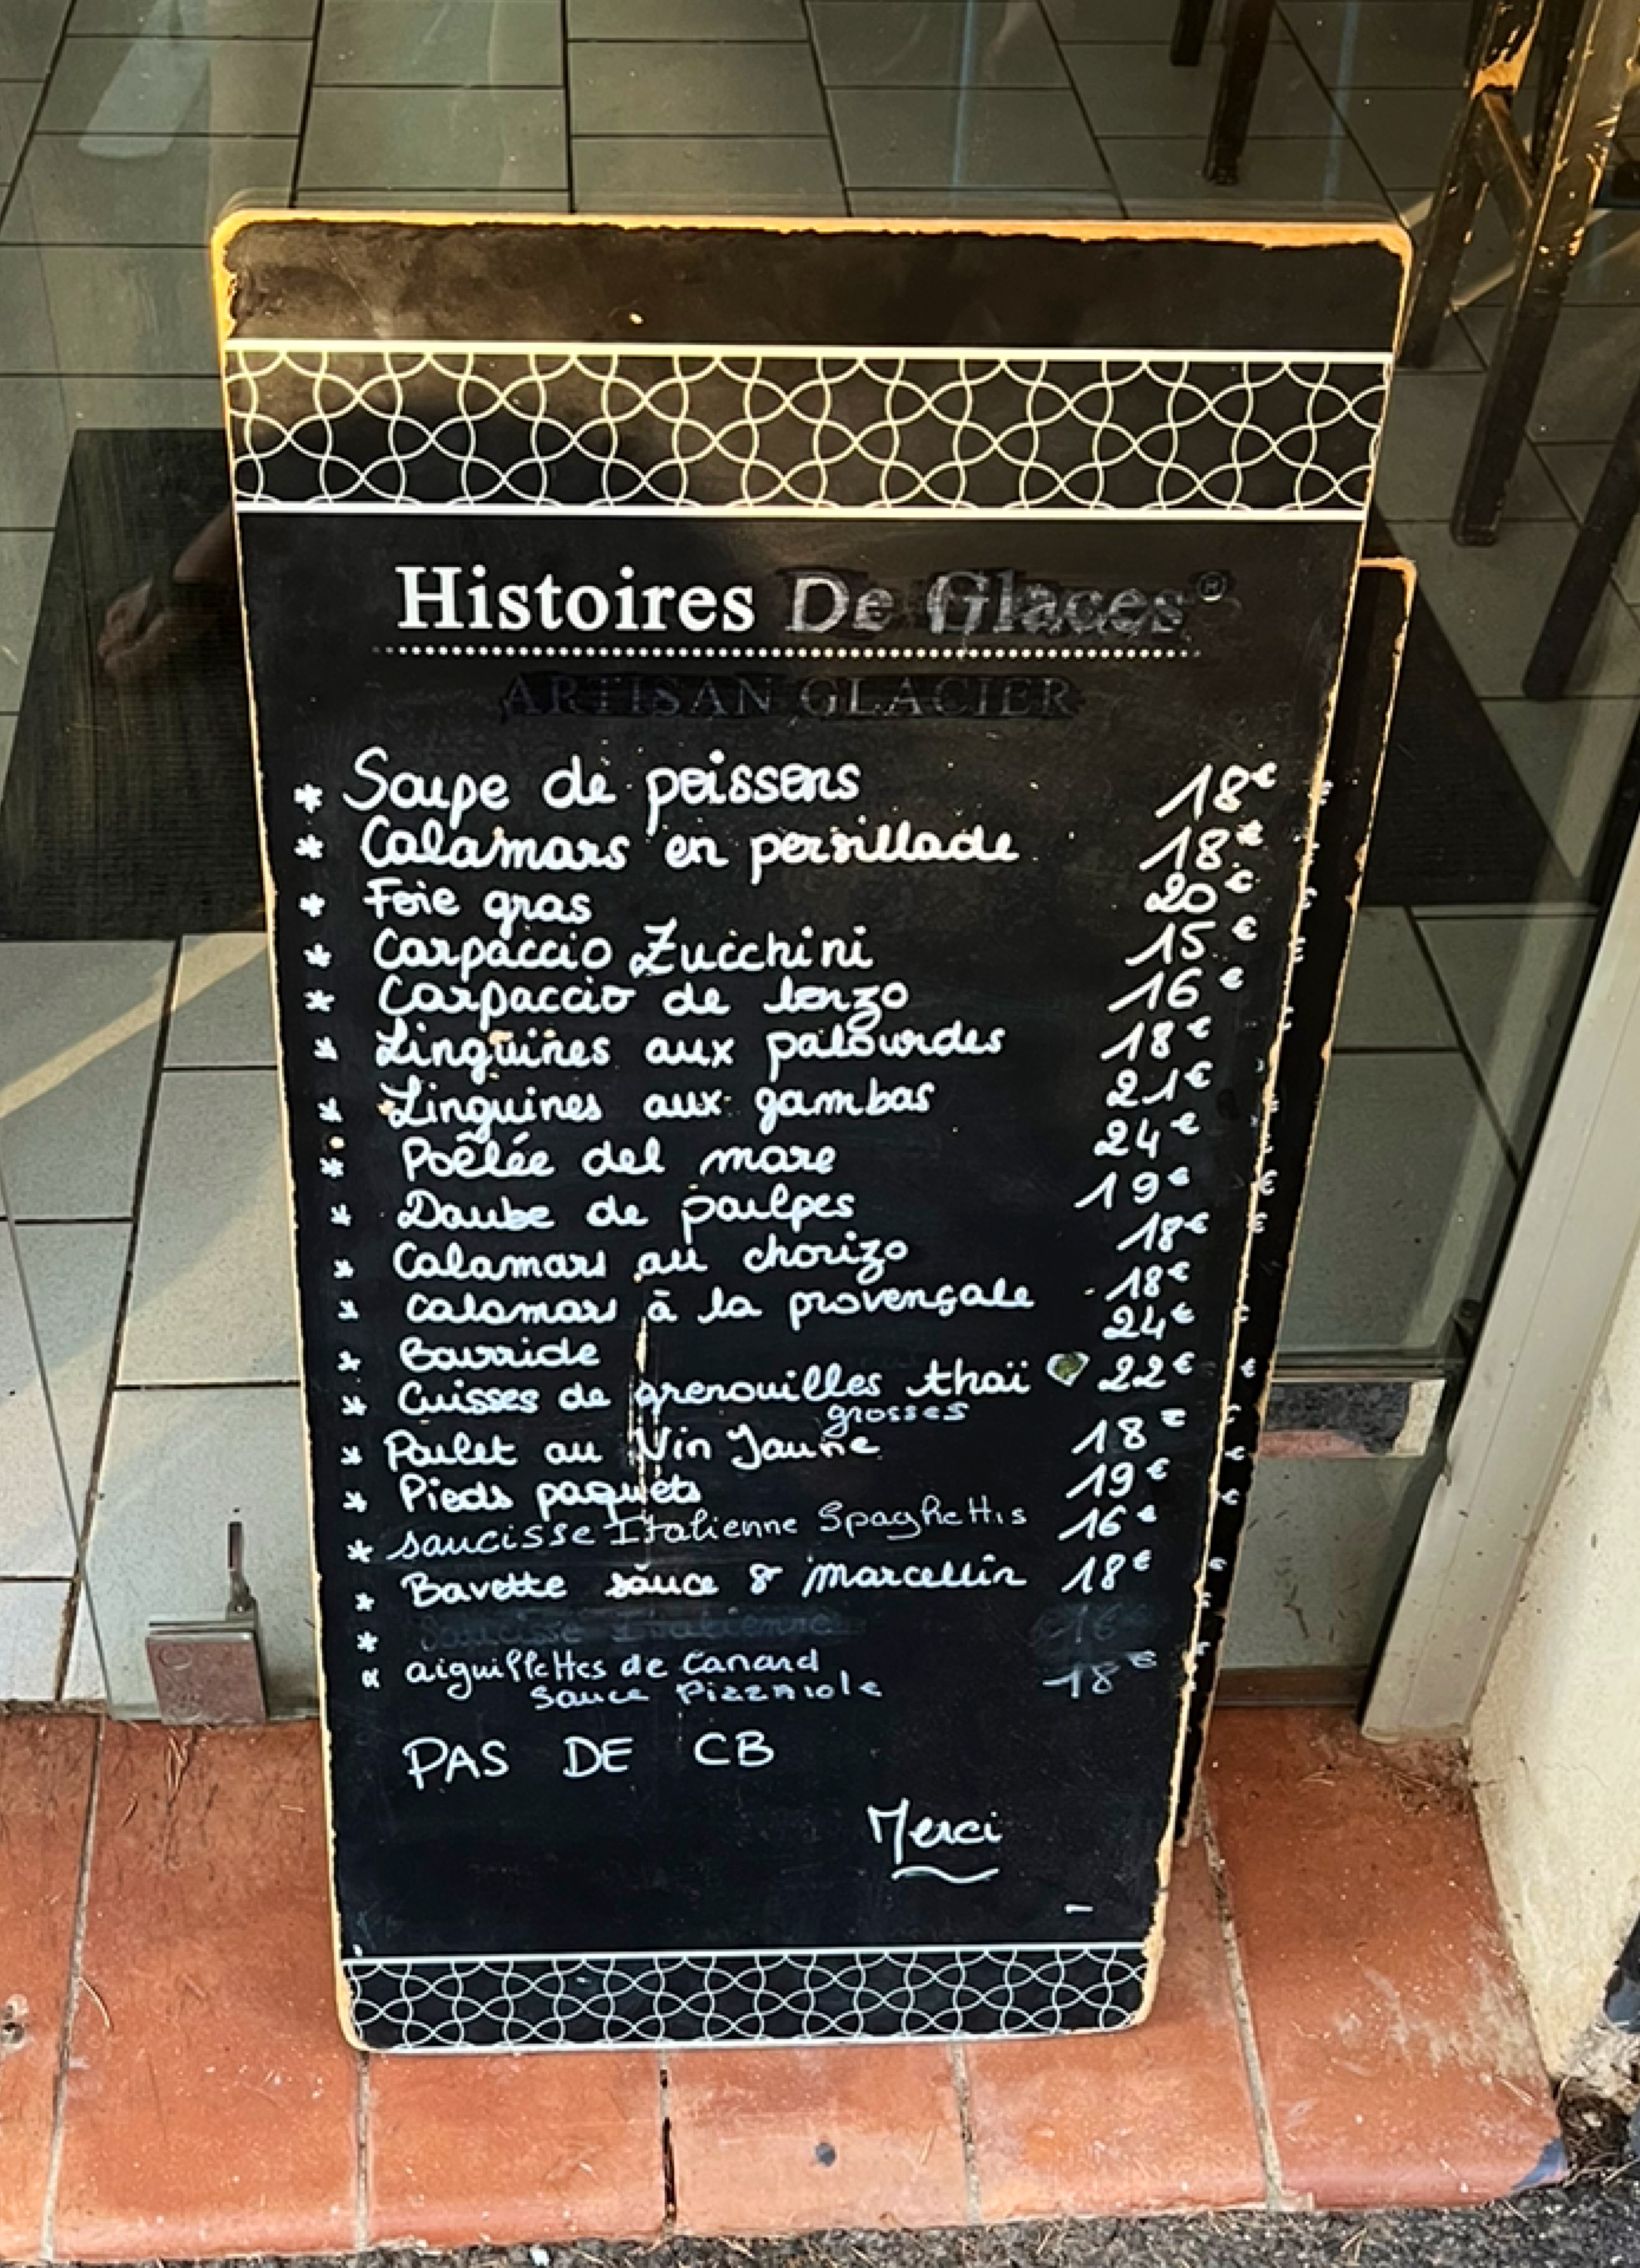 Histoires De Glaces®
ARTISAN GLACIER
* Soupe de poissons 18€
* Calamars en persillade 18€
* Foie gras 20€
* Carpaccio Zucchini 15€
* Carpaccio de lonzo 16€
* Linguines aux palourdes 18€
* Linguines aux gambas 21€
* Poêlée del mare 24€
* Daube de poulpes 19€
* Calamars au chorizo 18€
* Calamars à la provençale 18€
* Bourride 24€
* Cuisses de grenouilles thaï 22€
grosses
* Poulet au Vin Jaune 18€
* Pieds paquets 19€
* saucisse Italienne Spaghettis 16€
* Bavette sauce St marcellin 18€
* Saucisse Italienne 16€
* aiguillettes de Canard
Sauce Pizzaiole 18€
PAS DE CB
Merci